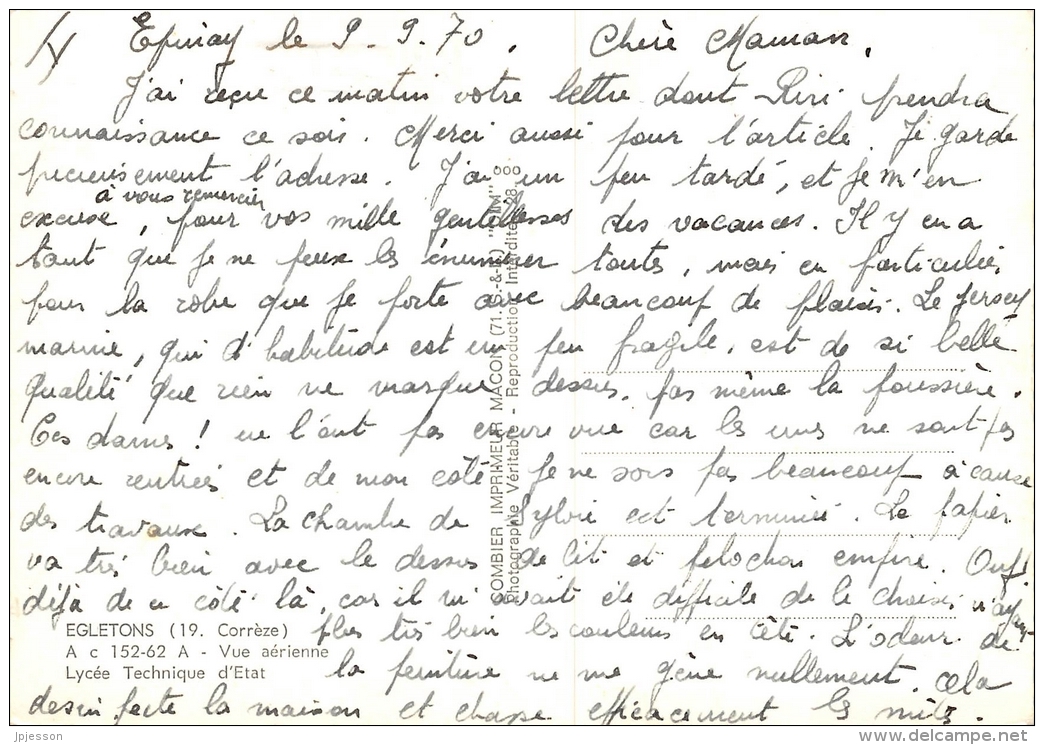 1/ Epinay le 9.9.70. Chère Maman,
J'ai reçu ce matin votre lettre dont Riri prendra
connaissance ce soir. Merci aussi pour l'article. Je garde
précieusement l'adresse. J'ai un peu tardé, et je m'en
à vous remercier
excuse, pour vos mille gentillesses des vacances. Il y en a
tant que je ne peux les énumérer toutes, mais en particulier
pour la robe que je porte avec beaucoup de plaisir. Le jersey
marine, qui d'habitude est un peu fragile, est de si belle
qualité que rien ne marque dessus, pas même la poussière.
Ces dames! ne l'ont pas encore vue car les unes ne sont pas
encore rentrées et de mon côté je ne sors pas beaucoup à cause
des travaux. La chambre de Sylvie est terminée. Le papier
va très bien avec le dessus de lit et pelochon empire. Ouf!
déjà de ce côté là, car il m'avait été difficile de le choisir n'ayant
plus très bien les couleurs en tête. L'odeur de
la peinture ne me gêne nullement, cela
desinfecte la maison et chasse efficacement les mites.
EGLETONS (19. Corrèze)
A c 152-62 A - Vue aérienne
Lycée Technique d'Etat
COMBIER IMPRIMEUR MACON (71. S.-&-L.) "CIM"
Photographie Véritable - Reproduction Interdite
jpjesson
© delcampe.net